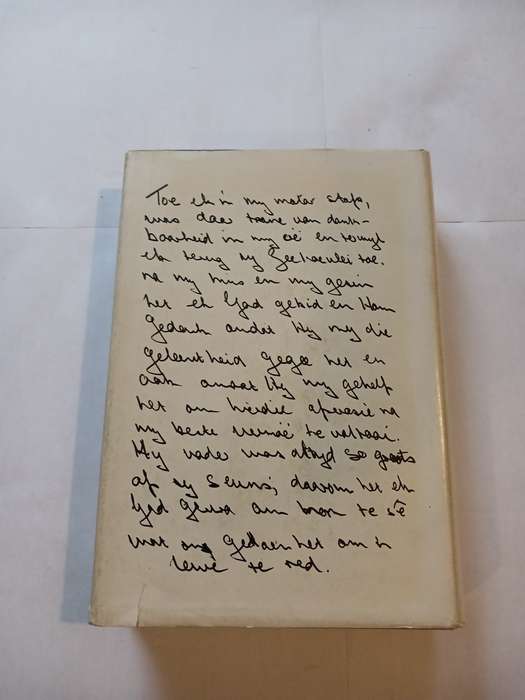 Toe ek in my motor stap,
was daar trane van dank-
baarheid in my oë en terwyl
ek terug ry Zeekoevlei toe.
na my huis en my gesin
het ek God gebid en Hom
gedank omdat Hy my die
geleentheid gegee het en
ook omdat Hy my gehelp
het om hierdie operasie na
my beste vermoë te voltooi.
My vader was altyd so groots
op sy seuns; daarom het ek
God gevra om hom te sê
wat ons gedoen het om 'n
lewe te red.